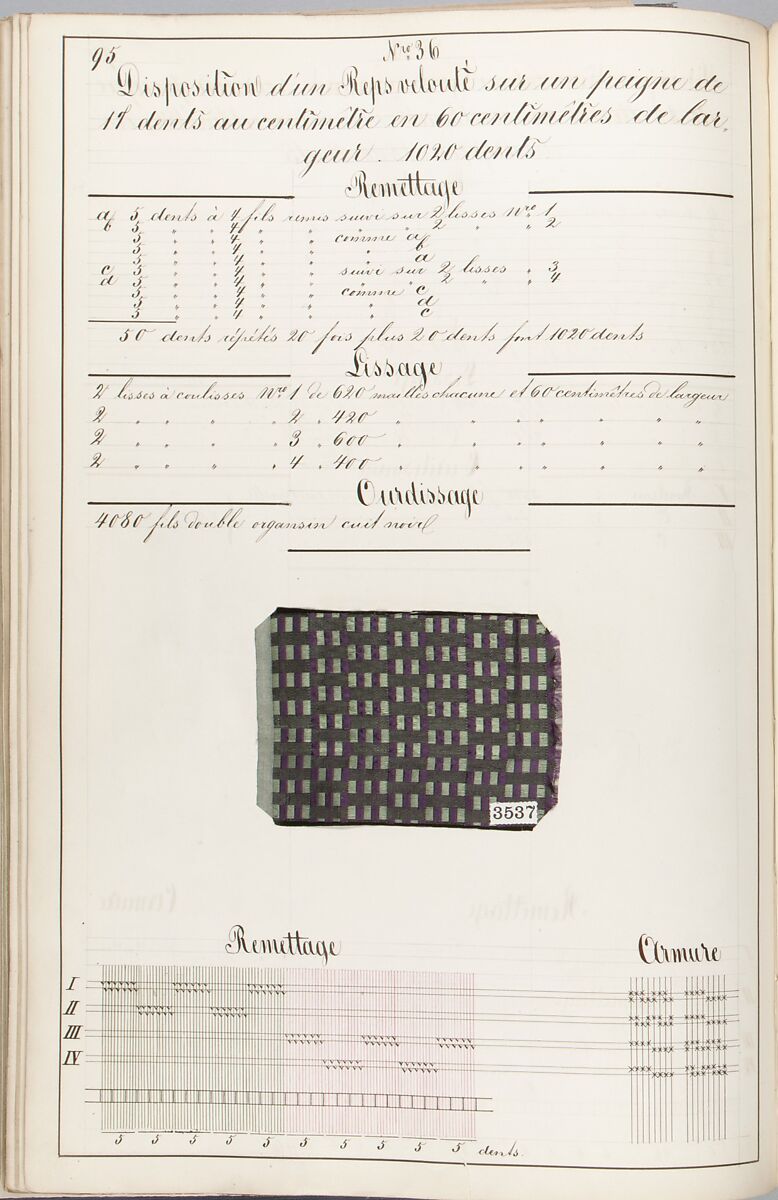 95
Nro 36
Disposition d'un Reps velouté sur un peigne de
17 dents au centimètre en 60 centimètres de lar-
geur. 1020 dents
Remettage
a 5 dents à 4 fils remis suivi sur 2 lisses Nro 1
b 5 " " 4 " " " " 2 " " 2
5 " 4 " " comme a
5 " 4 " " " b
5 " 4 " " " a
c 5 " 4 " " suivi sur 2 lisses " 3
d 5 " 4 " " " " 2 " " 4
5 " 4 " " comme c
5 " 4 " " " d
5 " 4 " " " c
50 dents répétés 20 fois plus 20 dents font 1020 dents
Lissage
2 lisses à coulisses Nro 1 de 620 mailles chacune et 60 centimètres de largeur
2 " " " " 2 " 420 " " " " " " "
2 " " " " 3 " 600 " " " " " " "
2 " " " " 4 " 400 " " " " " " "
Ourdissage
4080 fils double organsin cuit noir
3537
Remettage
Armure
I
II
III
IV
5 5 5 5 5 5 5 5 5 5 dents.